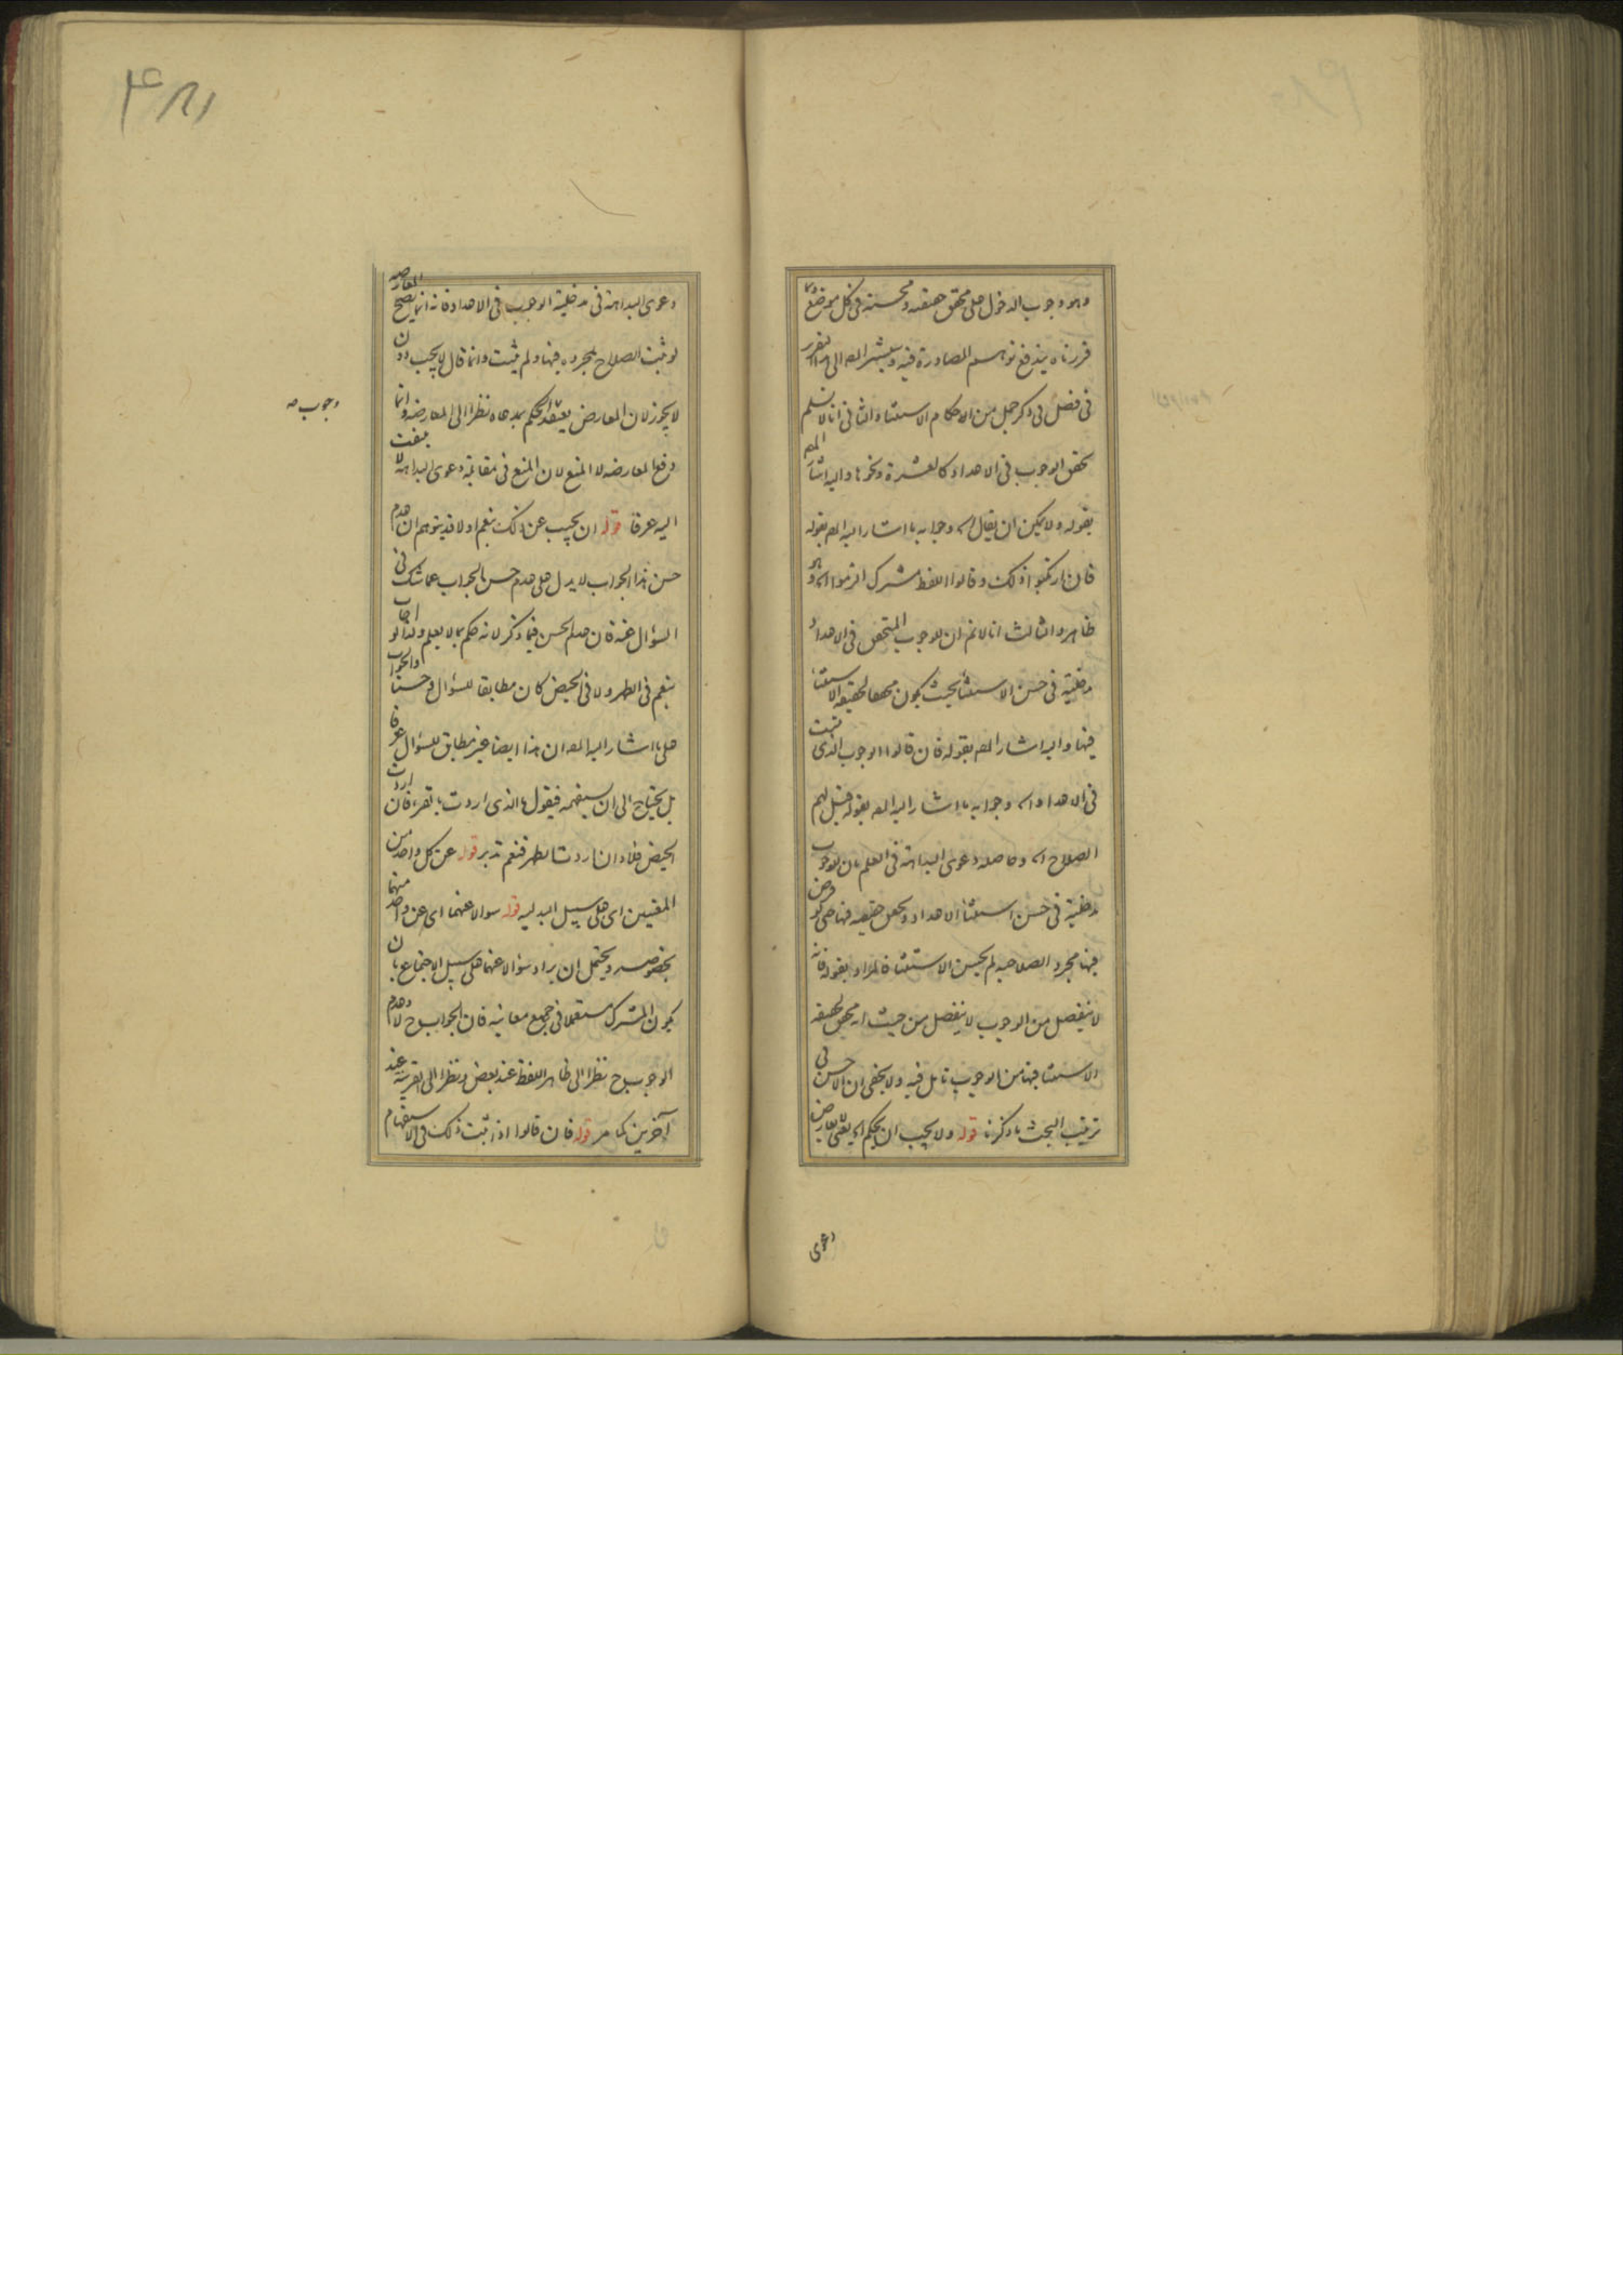 وهو وجوب الدخول على تحقق حقيقته ومحسنة في كل موضع وبما
قررناه يندفع توهم المصادرة فيه وسيشير المص الى هذا التقرير
في فصل في ذكر جمل من احكام الاستثنا والثاني انا لا نسلم
تحقق الوجوب في الاعداد كالعشرة ونحوها واليه اشار المص
بقوله ولا يمكن ان يقال اه وجوابه ما اشار اليه المص بقوله
فان ارتكبوا ذلك وقالوا اللفظ مشترك الزموا اه وهو
ظاهر والثالث انا لا نم ان للوجوب المتحقق في الاعداد
مدخلية في حسن الاستثنا بحيث يكون محققا لحقيقة الاستثنا
فيها واليه اشار المص بقوله فان قالوا الوجوب الذي يثبت
في الاعداد اه وجوابه ما اشار اليه المص بقوله قيل لهم
الصلاح اه وحاصله دعوى البداهة في العلم بان للوجوب
مدخلية في حسن استثنا الاعداد وتحقق حقيقته فيها حتى لو فرض
فيها مجرد الصلاحية لم يحسن الاستثنا فالمراد بقوله فانه
لا ينفصل من الوجوب لا ينفصل من حيث انه محقق لحقيقة
الاستثنا فيها من الوجوب تامل فيه ولا يخفى ان الاحسن في
ترتيب البحث ما ذكرنا قوله ولا يجب ان يحكم اه يعني المعارض
دعوى
۴۸۱
دعوى البداهة في مدخلية الوجوب في الاعداد فانه انما يصح المعارضة
لو ثبت الصلاح بمجرده فيها ولم يثبت وانما قال لا يجب دون
لا يجوز لان المعارض يعتقد الحكم بمدعاه نظرا الى المعارضة وانما
وجوب صه
دفع المعارضة لا المنع لان المنع في مقابلة دعوى البداهة لا يلتفت
اليه عرفا قوله ان يجيب عن ذلك بنعم او لا قد يتوهم ان عدم
حسن هذا الجواب لا يدل على عدم حسن الجواب عما شك في
السؤال عنه فان عدم الحسن فيما ذكر لانه حكم بما لا يعلم ولذا لو اجاب
بنعم في الطهر ولا في الحيض كان مطابقا للسؤال وحسنا والجواب
على ما اشار اليه المص ان هذا ايضا غير مطابق للسؤال عرفا
بل يحتاج الى ان يستفهمه فيقول ما الذي اردت بالقرء فان اردت
الحيض فلا وان اردت الطهر فنعم تدبر قوله عن كل واحد من
المعنيين اي على سبيل البدلية قوله سوالا عنهما اي عن واحد منهما
بخصوصه ويحتمل ان يراد سؤالا عنهما على سبيل الاجتماع بان
يكون المشترك مستعملا في جميع معانيه فان الجواب ح لا وعدم
الوجوب ح نظرا الى ظاهر اللفظ عند بعض ونظرا الى القرينة عند
آخرين كما مر قوله فان قالوا اذا ثبت ذلك في الاستفهام